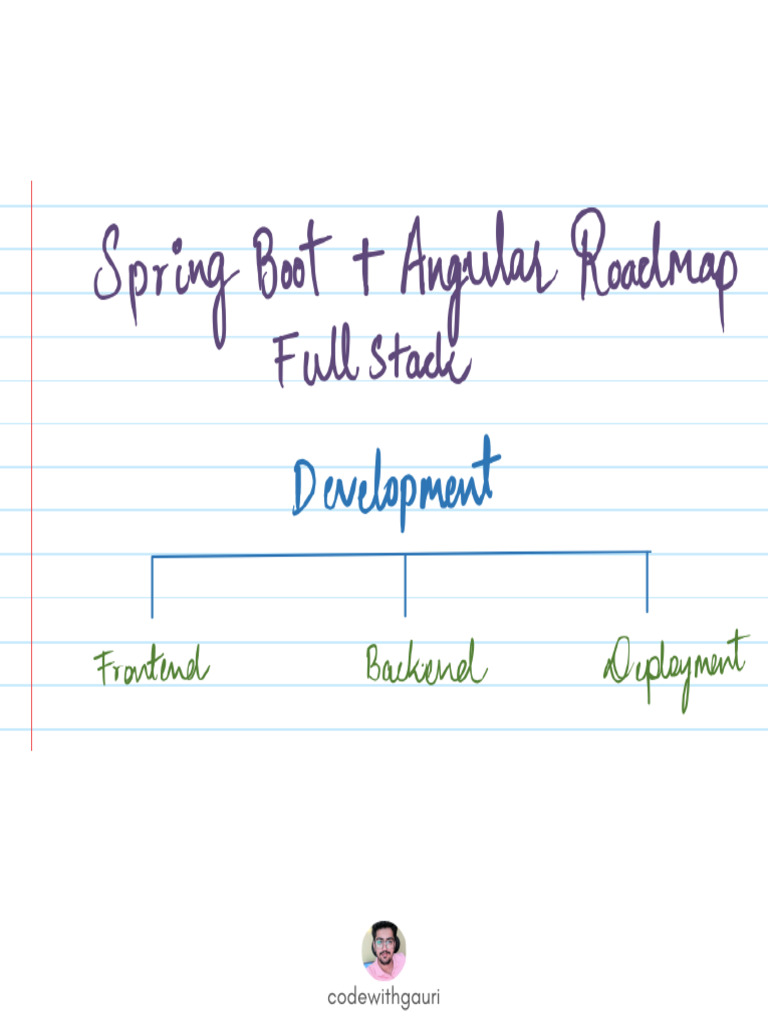 Spring Boot + Angular Roadmap
Full Stack
Development
Frontend Backend Deployment
codewithgauri